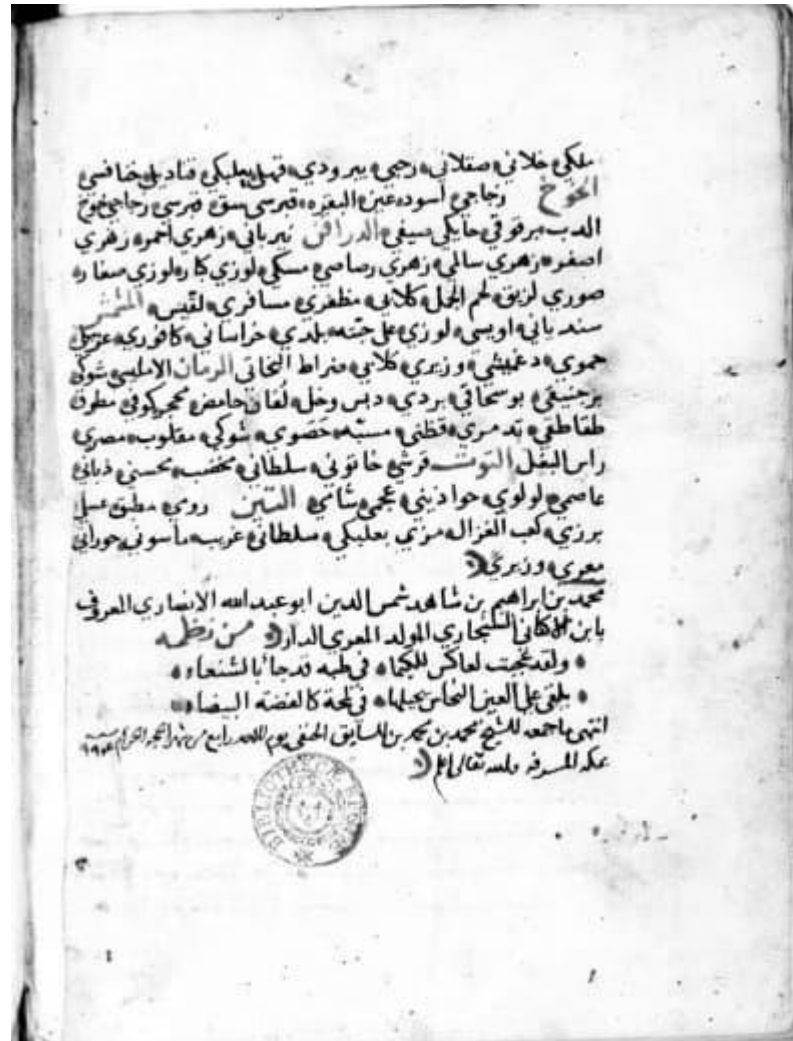 ملكي خلاني صقلاني رحبي يبرودي قهلي بعلبكي قناديل خنافسي
الخوخ زجاجي اسود عين البقر قبرسي سق قبرسي زجاجي خوخ
الدب برقوقي حايكي صيفي الدراقن نيرباني زهري احمر زهري
اصفر زهري سالمي زهري رصاصي مسكي لوزي كبار لوزي صغار
صوري لزيق لحم الجمل كلابي مظفري مسافري لقيس المشمش
سندياني اويسي لوزي على جنبه بلدي خراساني كافوري
حموي دغميشي وزيري كلابي ضراط الرمان الامليسي شوكي
برجنيقي بردي دبس وخل لفان حامض مطوق
طقاطقي تدمري قطني شوكي مقلوب مصري
راس البغل التوت قرشي خاتوني سلطاني مخضب محسني
عاصمي لولوي عجمي شامي التين رومي عسلي
برزي كعب الغزال مزي بعلبكي سلطاني غريب ماسوني حوراني
معري وزيري
محمد بن ابراهيم بن ساعد شمس الدين ابو عبد الله الانصاري المعروف
بابن الاكفاني السنجاري المولد المصري الدار من نظمه
ولقد عجبت لعاكس للكيمياء في طبه قد جا بالشنعاء
يلقي على العين النحاس يحيلها في لمحة كالفضة البيضاء
انتهى ما جمعه الشيخ محمد بن محمد بن السابق الحنفي يوم رابع من شهر الحرام
بمكة المشرفة والله تعالى اعلم